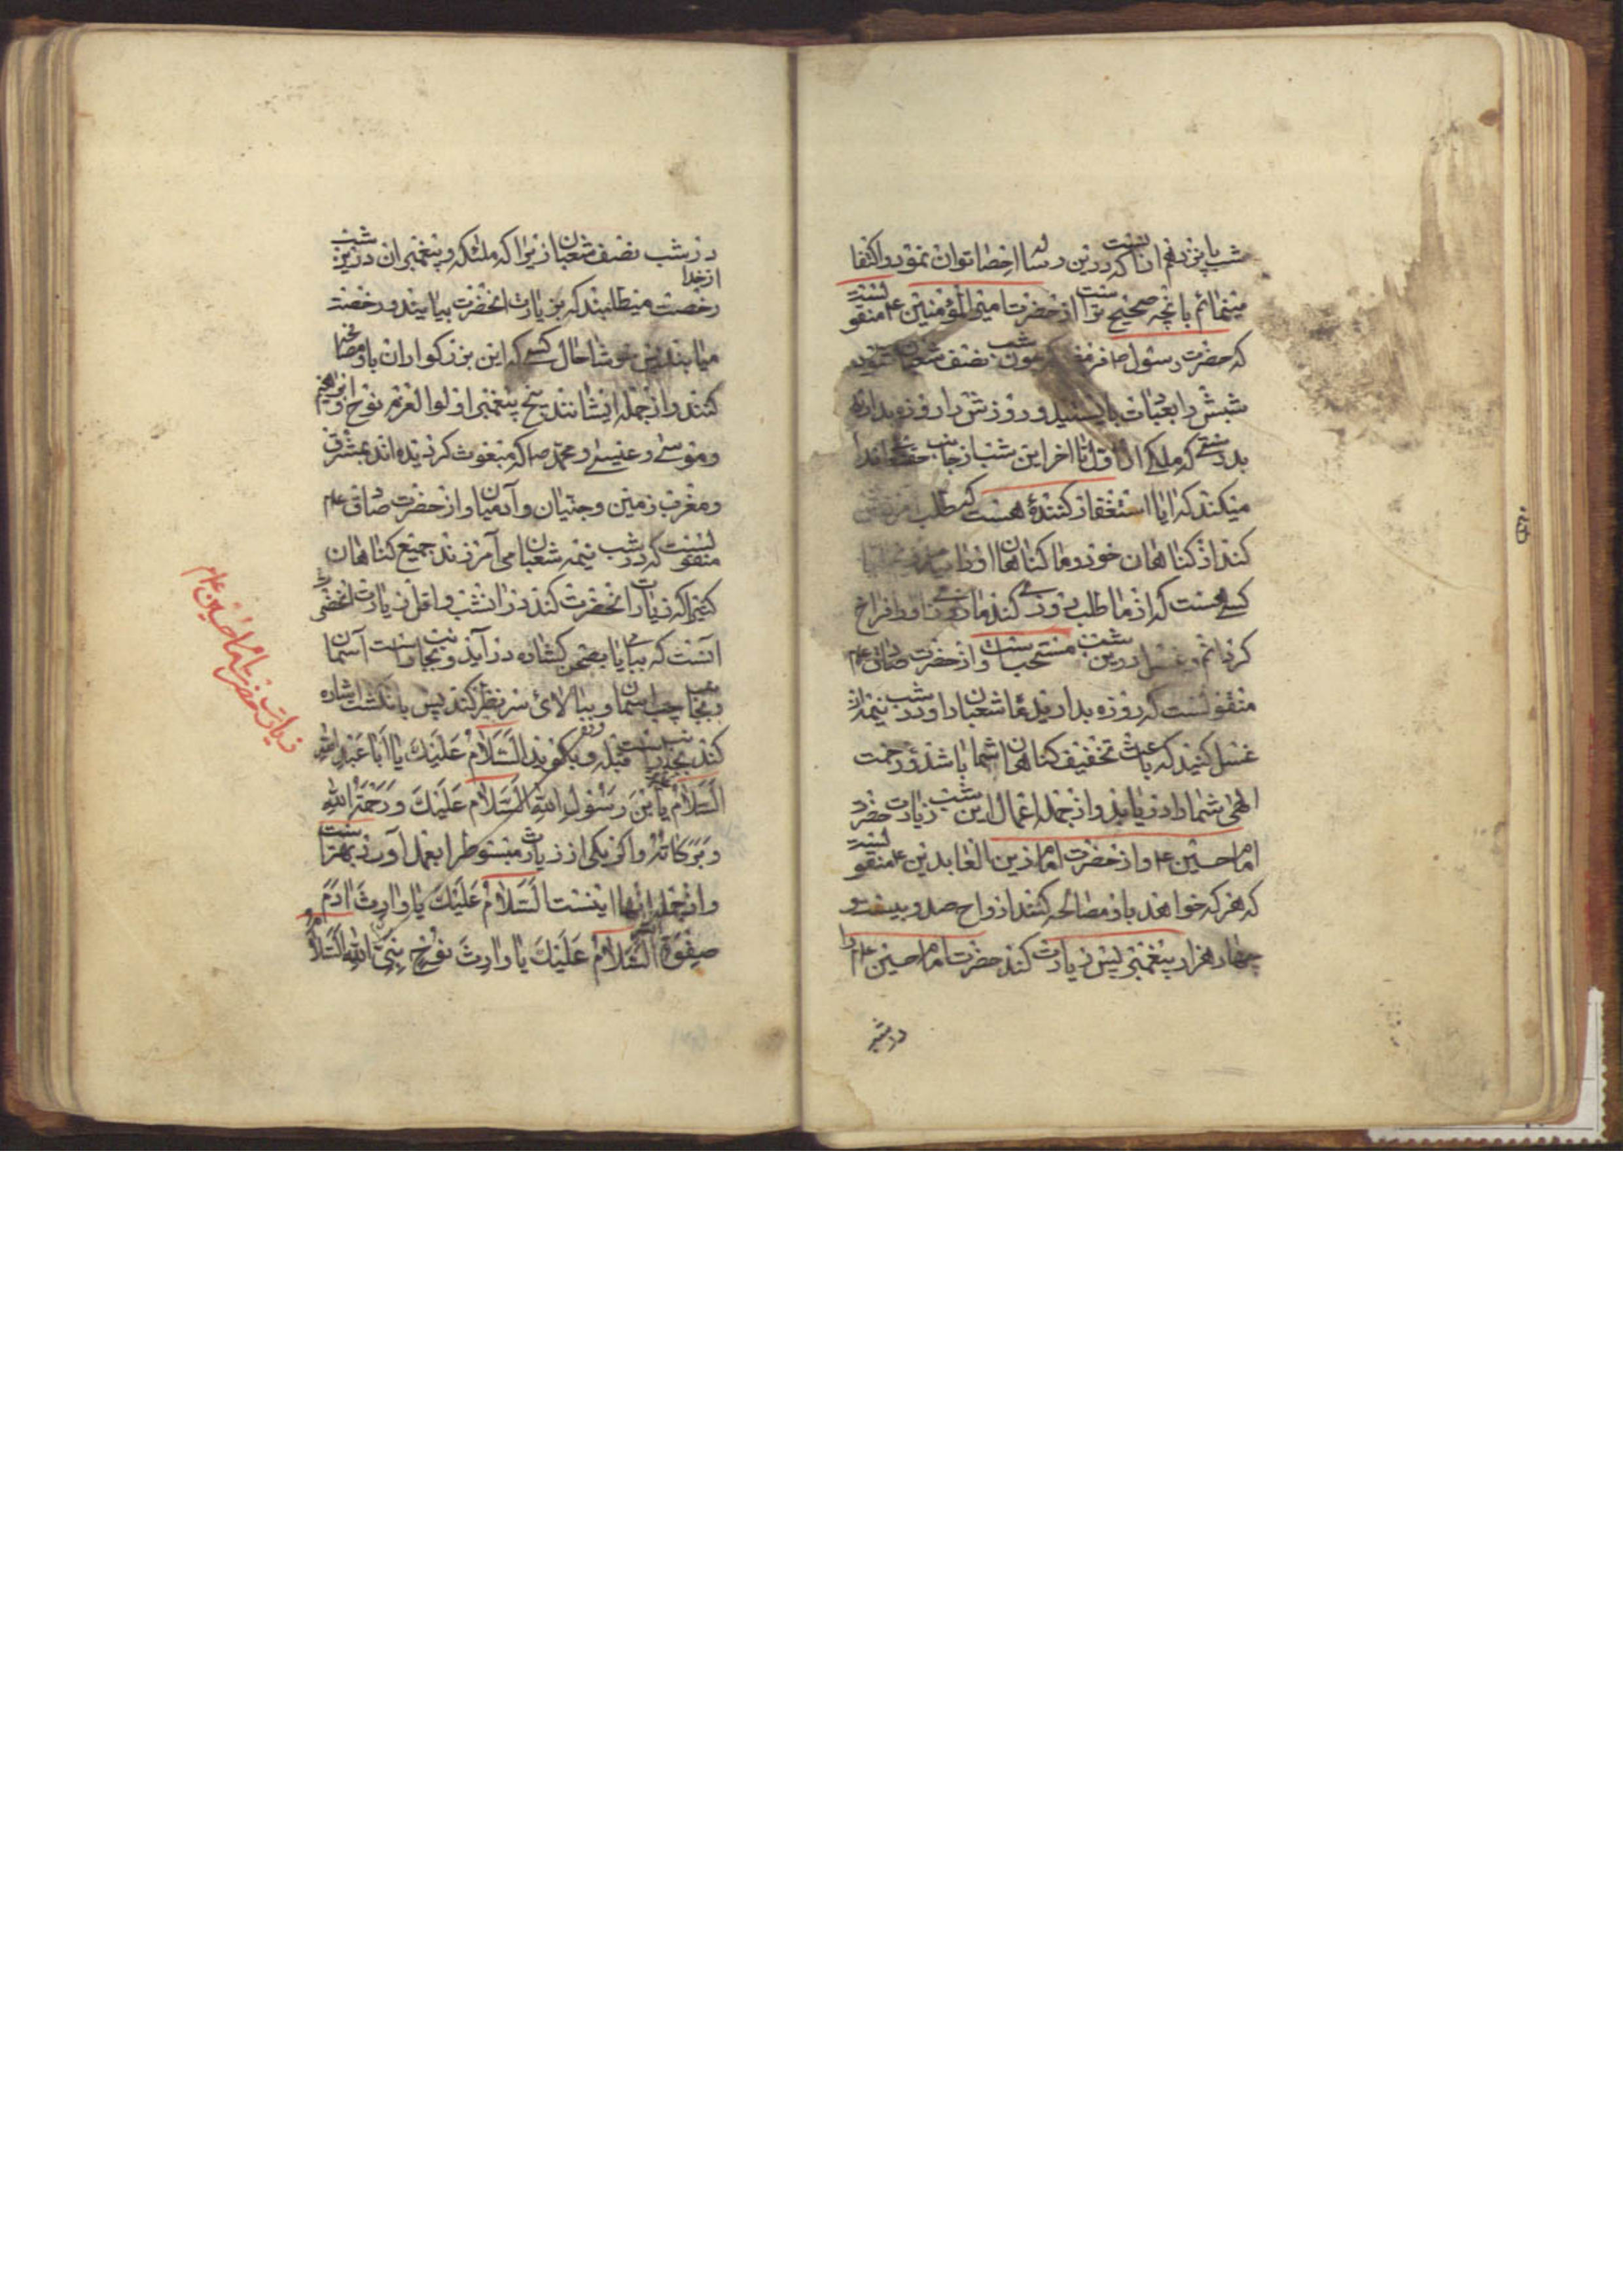 شب پانزدهم از آنست که درین رساله احصا توان نمود و اکتفا
مینمائم بانچه صحیح تر است از حضرت امیر المؤمنین ع منقولست
که حضرت رسول ص فرمود که چون شب نصف شعبان شود
شبش را بعبادت بایستید و روزش را روزه بدارید
بدرستی که ملکی از اول تا آخر این شب از جانب حقتعالی ندا
میکند که ایا استغفار کننده هست که طلب امرزش
کند از کناهان خود و ما کناهان او را بیامرزیم ایا
کسی هست که از ما طلب روزی کند ما روزی او را فراخ
کردانم و غسل درین شب مستحب است و از حضرت صادق علم
منقولست که روزه بدارید ماه شعبان را و در شب نیمه ان
غسل کنید که باعث تخفیف کناهان شما باشد و رحمت
الهی شما را دریابد و از جمله اعمال این شب زیارت حضرت
امام حسین ع و از حضرت امام زین العابدین ع منقولست
که هر که خواهد با او مصافحه کنند ارواح صد و بیست و
چهار هزار پیغمبر پس زیارت کند حضرت امام حسین علم را
در شب
در شب نصف شعبان زیرا که ملئکه و پیغمبران درین شب
از خدا
رخصت میطلبند که بزیارت انحضرت بیایند و رخصت
میابند پس خوشا حال کسی که این بزرکواران با او مصافحه
کنند و از جمله ایشانند پنج پیغمبر اولوا العزم نوح و ابرهیم
و موسی و عیسی و محمد ص که مبعوث کردیده اند بمشرق
و مغرب زمین و جنیان و آدمیان و از حضرت صادق علم
منقولست که در شب نیمه شعبان می آمرزند جمیع کناهان
کسیرا که زیارت انحضرت کند در انشب و اقل زیارت انحضرت
آنست که ببامی یا بصحرای کشاده در آید و بجانب راست آسمان
و بجانب چپ آسمان و ببالای سر نظر کند پس بانکشت اشاره
کند بجانب قبله و بکوید السَّلامُ عَلَیْکَ یا اَبا عَبْدِ اللهِ
السَّلامُ یا بْنَ رَسُولِ اللهِ السَّلامُ عَلَیْکَ وَ رَحْمَةُ اللهِ
وَ بَرَکاتُهُ و اکر یکی از زیارت مبسوط را بعمل آورد بهتر است
و از جمله انها اینست السَّلامُ عَلَیْکَ یا وارِثَ ادَمَ
صِفْوَةِ اللهِ السَّلامُ عَلَیْکَ یا وارِثَ نُوحٍ نَبِیِّ اللهِ السَّلامُ
زیارت حضرت امام حسین علم